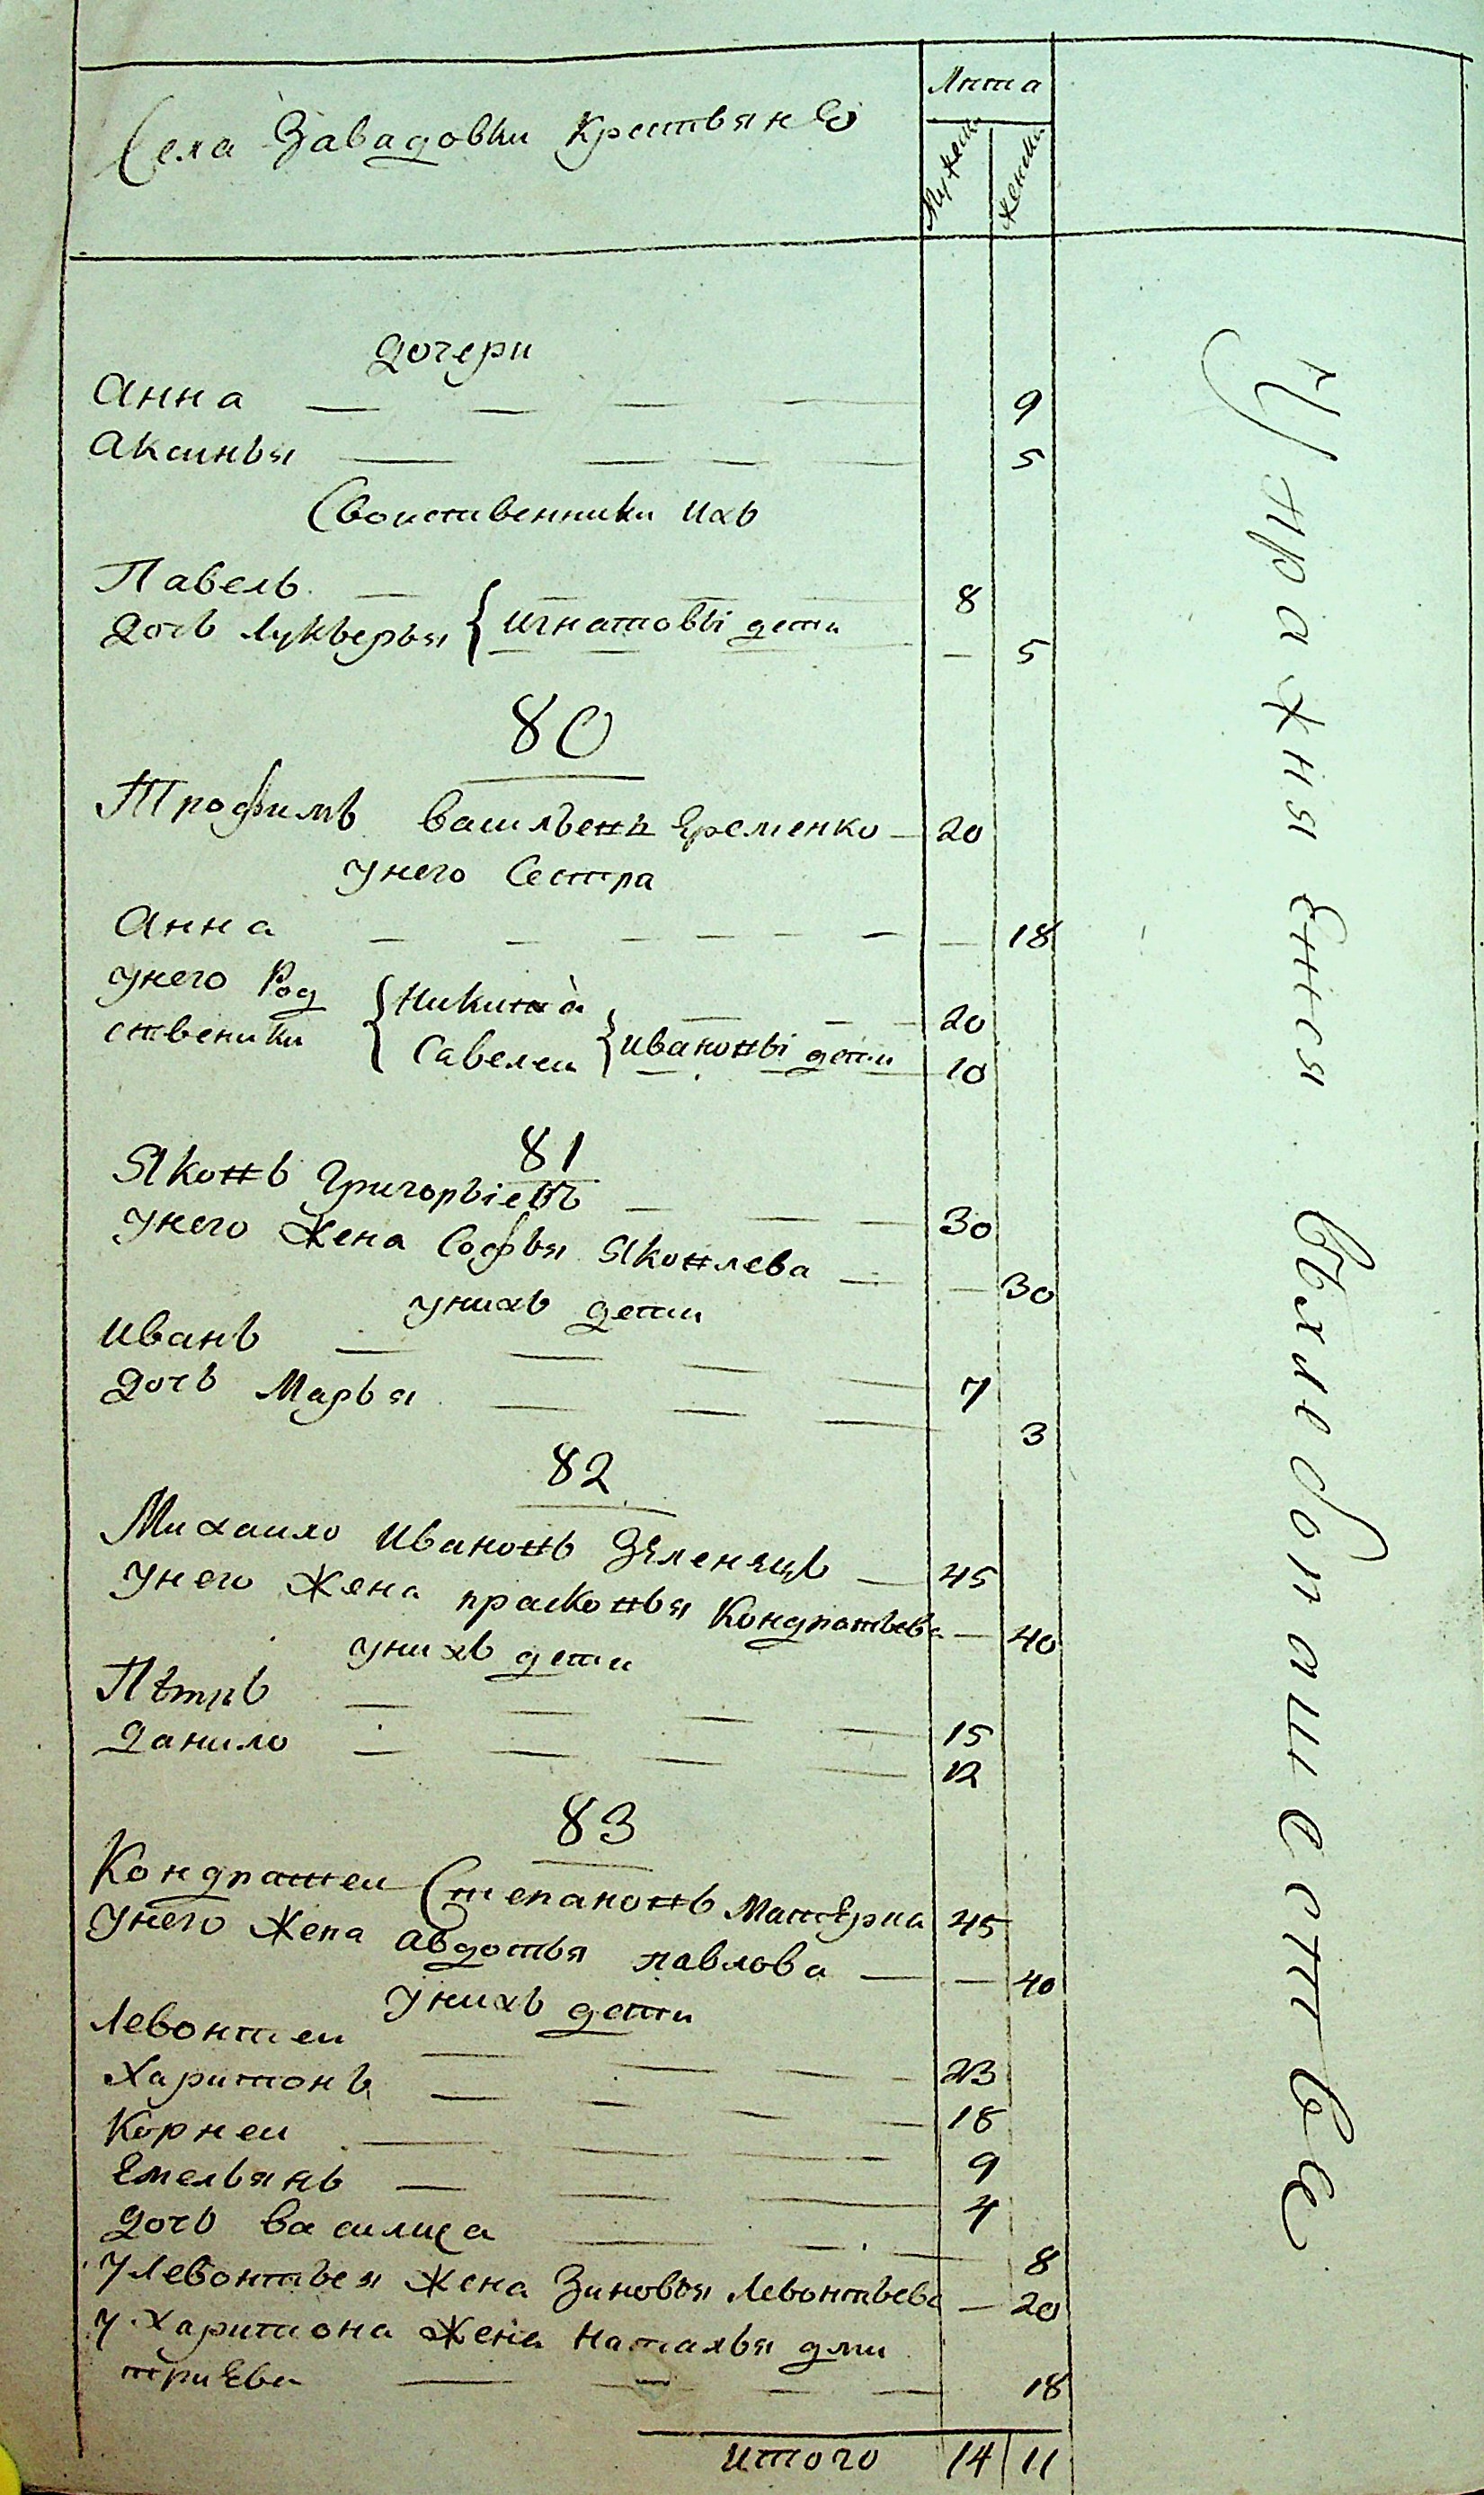 Села Завадовки Крестьянъ
Лета
Мужеск
женск
дочери
Анна — — — — 9
Аксинья — — — — 5
Своиственники ихъ
Павелъ — — — — 8
дочь Лукьерья { игнатовы дети — 5
80
Трофимъ васильевъ Еременко — 20
унего Сестра
Анна — — — — — — — 18
унего Род { Никита — — — 20
ственики Савелеи { ивановы дети 10
81
Яковъ Григорьіевъ — — — 30
унего Жена Софья Яковлева — — 30
унихъ дети
иванъ — — — — 7
дочь Марья — — — 3
82
Михаило ивановъ Зеленецъ — 45
унего Жена прасковья Кондратьева — 40
унихъ дети
Петръ — — — — 15
данило — — — — 12
83
Кондратеи Степановъ 45
унего Жена авдотья павлова — — 40
унихъ дети
Левонтеи — — — — 23
Харитонъ — — — — 18
Корнеи — — — 9
Емельянъ — — — 4
дочь василиса — — — 8
У Левонтьея Жена Зиновья Левонтьева — 20
У Харитона Жена Наталья дми
триева — — — — 18
итого 14 11
Упражняются въхлебопашестве